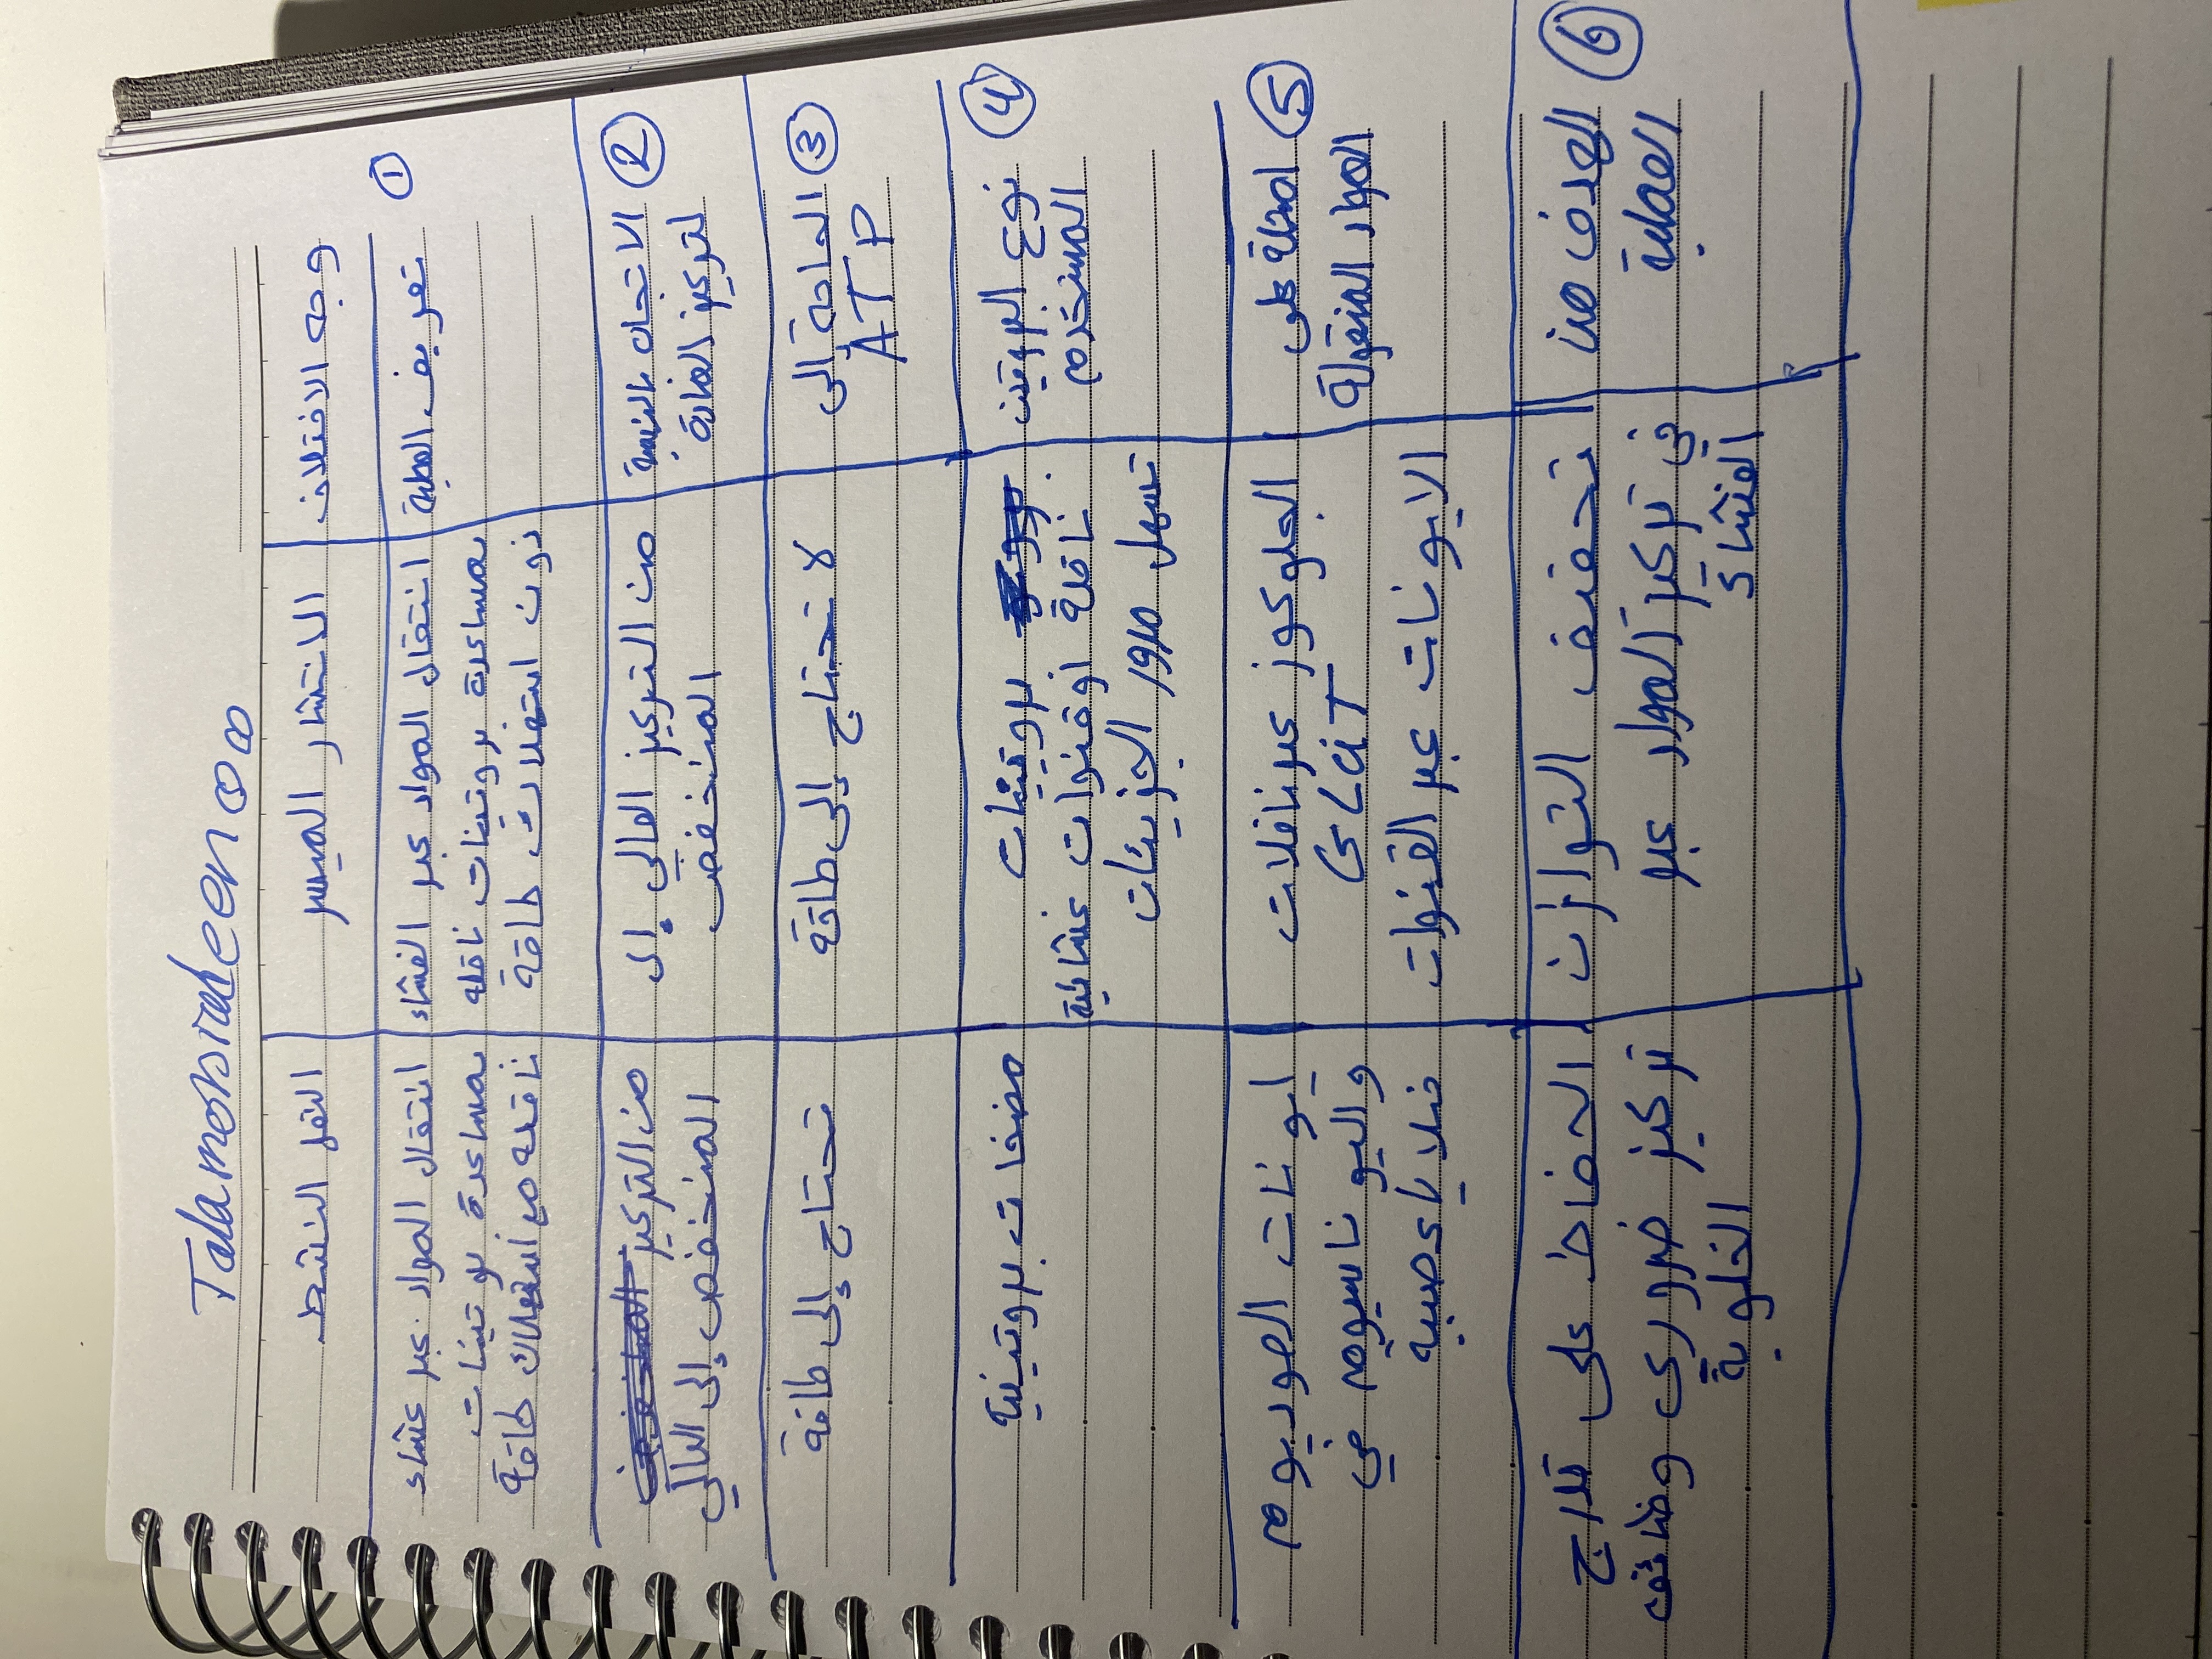 Tala
وجه الاختلاف
الانتشار الميسر
النقل النشط
①
تعريف العملية
انتقال المواد عبر الغشاء
بمساعدة بروتينات ناقله
دون استهلاك طاقة
انتقال المواد عبر غشاء
بمساعدة بوتينات
ناقله مع استهلاك طاقة
②
الاتجاه بالنسبة
لتركيز المادة
من التركيز العالي إلى
المنخفض
من التركيز
المنخفض إلى العالي
③
الحاجة إلى
ATP
لا تحتاج إلى طاقة
تحتاج إلى طاقة
④
نوع البروتين
المستخدم
بروتينات
ناقلة أوقنوات غشائية
تسهل مرور الجزيئات
مضخات بروتينية
⑤
امثلة على
المواد المنقولة
الجلوكوز عبر ناقلات
الايونات عبر القنوات
ايونات الصوديوم
والبوتاسيوم في
خلايا عصبيه
⑥
الهدف من
العملية
تحقيق التوازن
في تركيز المواد عبر
الغشاء
الحفاظ على تدرج
تركيز ضروري وضائف
الخلوية